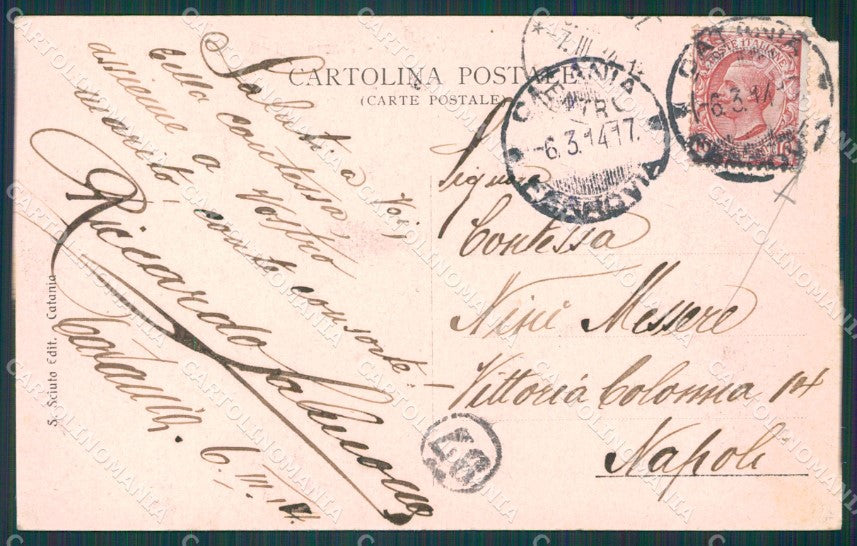 CARTOLINA POSTALE
(CARTE POSTALE)
Saluti a Voi,
bella contessa,
assieme a vostro
marito, conte consorte!
Riccardo
Catania. 6. III. 14
S. Sciuto Edit. Catania
CATANIA
CENTRO
-6.3.14 17.
FERROVIA
-7. III. 14
CATANIA
-6.3.14
POSTE ITALIANE
Signora
Contessa
Ninì Messere
Vittoria Colonna 14
Napoli
97
CARTOLINOMANIA